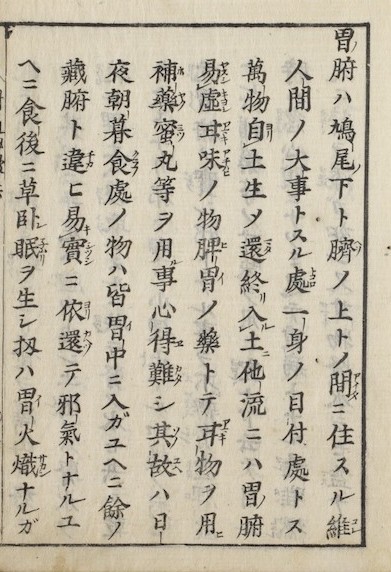 胃腑ハ鳩尾ノ下ト臍ノ上トノ間ニ住スル維
人間ノ大事トスル處一身ノ目付處トス
萬物自土生メ還終入土他流ニハ胃腑
易虚甘味ノ物脾胃ノ藥トテ甘物ヲ用
補藥蜜丸等ヲ用事心得難シ其故ハ日
夜朝暮食處ノ物ハ皆胃中ニ入ガユヘニ餘ノ
藏腑ト違ヒ易實ニ依還テ邪氣トナルユ
ヘニ食後ニ草臥眠ヲ生シ扨ハ胃火熾ナルガ